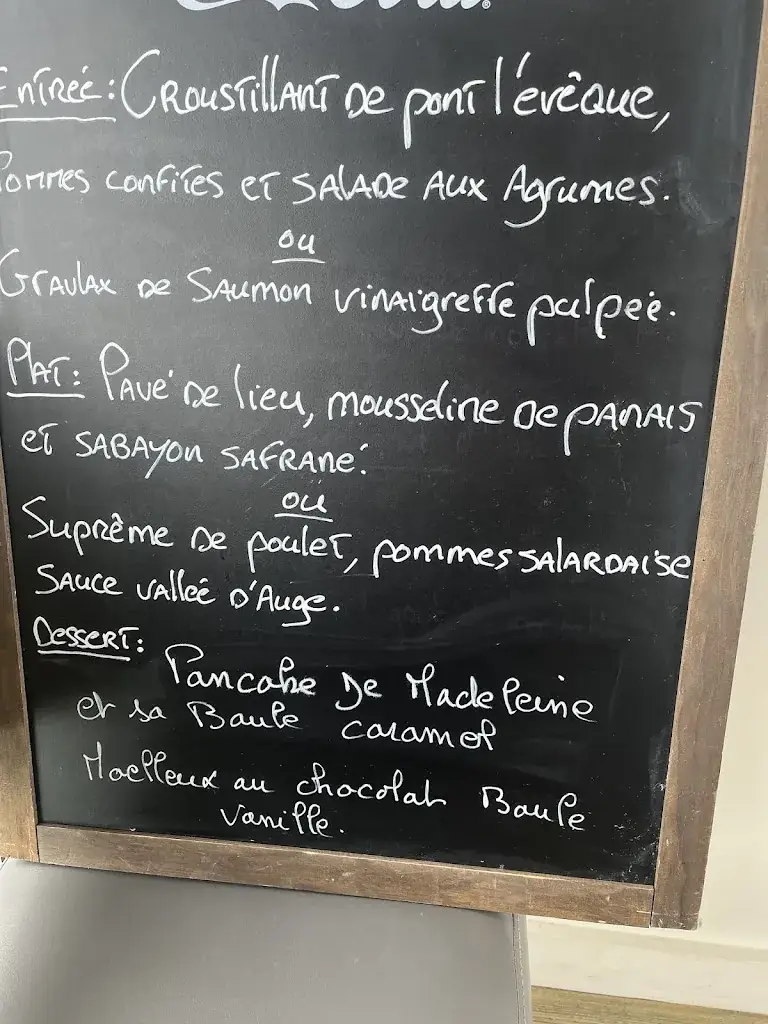 Entrée: Croustillant de pont l'évêque,
Pommes confites et salade aux Agrumes.
ou
Gravlax de Saumon vinaigrette pulpeé.
Plat: Pavé de lieu, mousseline de panais
et sabayon safrané.
ou
Suprême de poulet, pommes salardaise
Sauce valleé d'Auge.
Dessert:
Pancake de Madeleine
et sa Boule caramel
Moelleux au chocolat Boule
vanille.